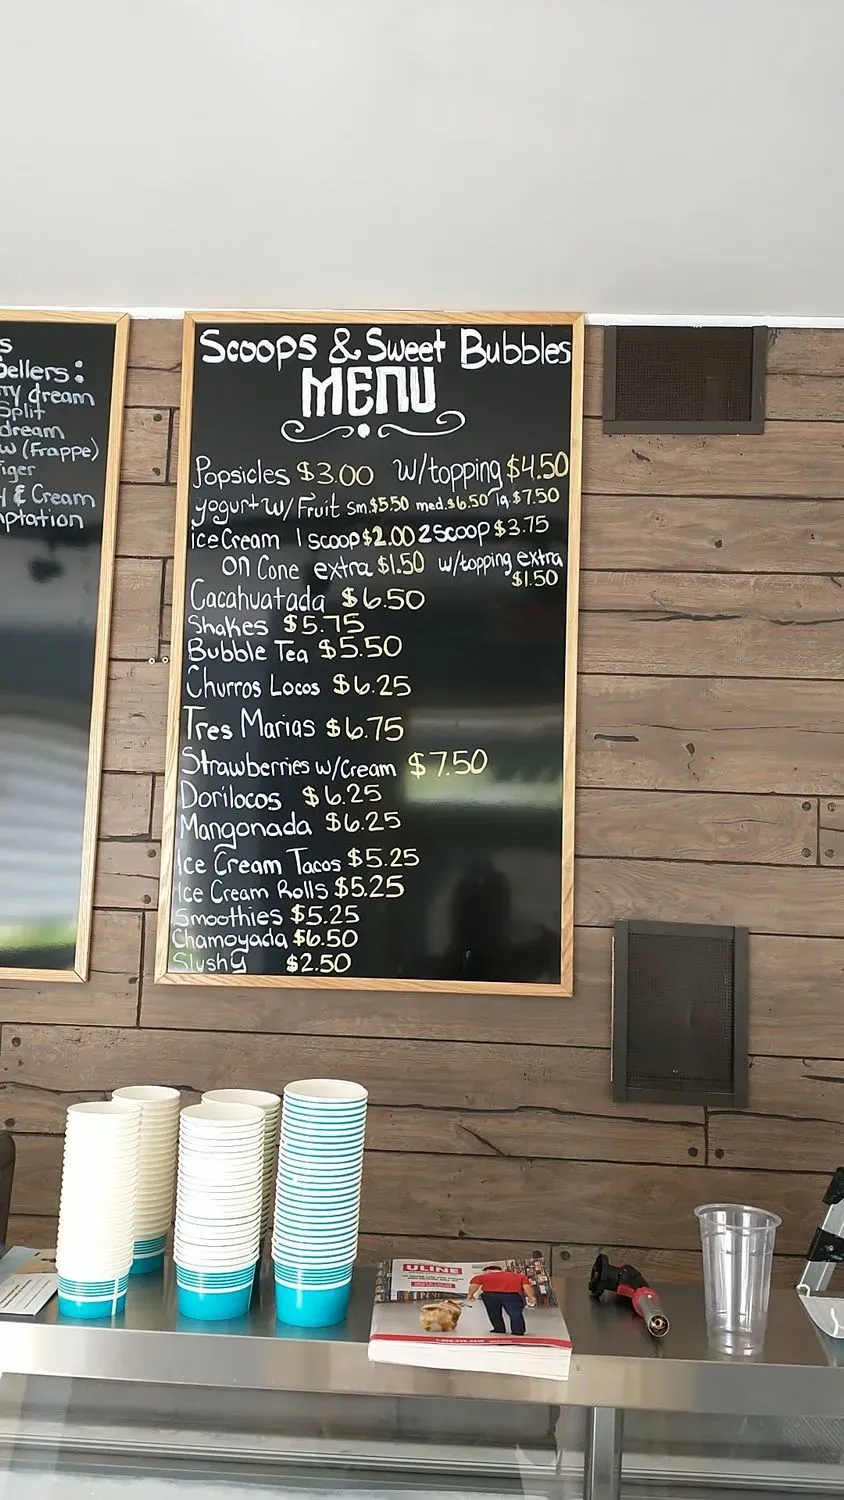 s
ellers:
dream
Split
dream
w (Frappe)
iger
& Cream
ptation
Scoops & Sweet Bubbles
MENU
Popsicles $3.00 w/topping $4.50
yogurt w/ Fruit Sm.$5.50 med.$6.50 lg.$7.50
ice Cream 1 scoop $2.00 2 scoop $3.75
on Cone extra $1.50 w/topping extra
$1.50
Cacahuatada $6.50
Shakes $5.75
Bubble Tea $5.50
Churros Locos $6.25
Tres Marias $6.75
Strawberries w/Cream $7.50
Dorilocos $6.25
Mangonada $6.25
Ice Cream Tacos $5.25
Ice Cream Rolls $5.25
Smoothies $5.25
Chamoyada $6.50
Slushy $2.50
ULINE